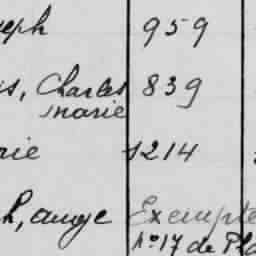 eph 959
s, Charles 839
marie
rie 1214
h, ange Exempte
No 17 de Pla